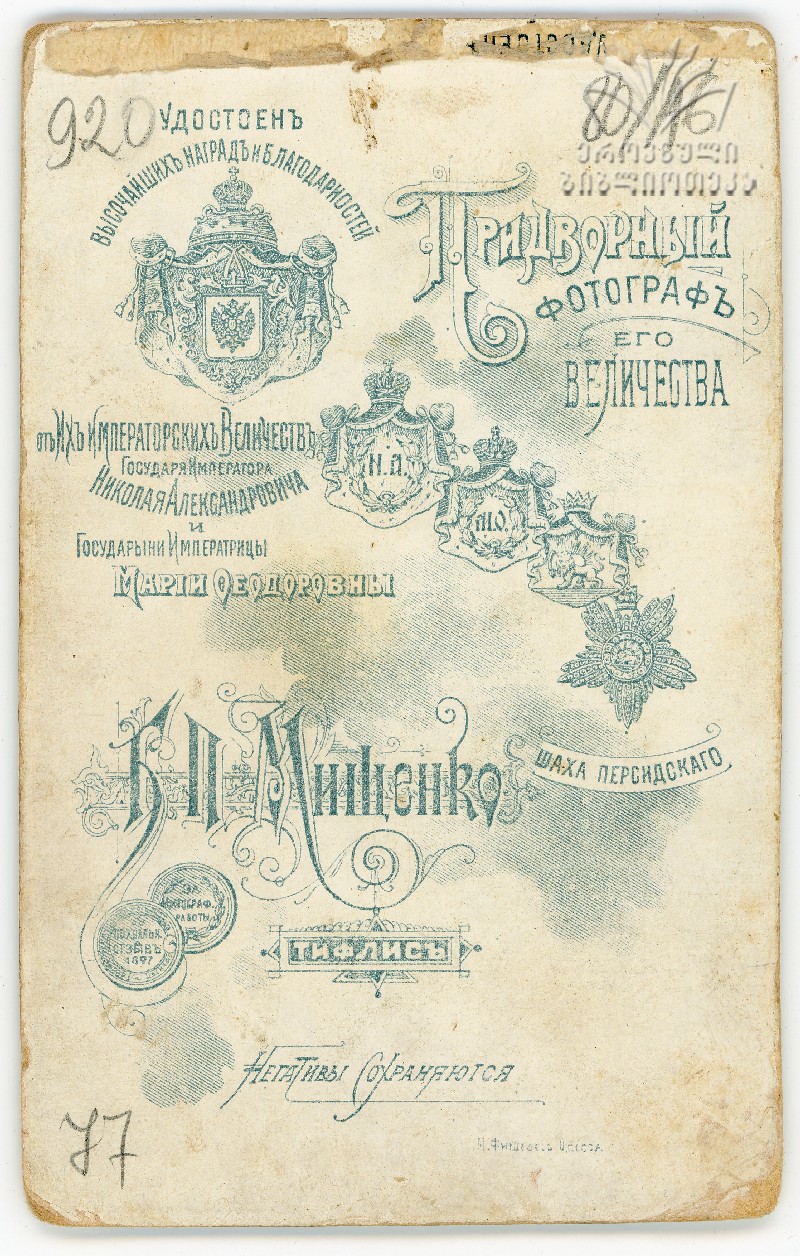 920
УДОСТОЕНЪ
ВЫСОЧАЙШИХЪ НАГРАДЪ И БЛАГОДАРНОСТЕЙ
ეროვნული
ბიბლიოთეკა
ПРИДВОРНЫЙ
ФОТОГРАФЪ
ЕГО
ВЕЛИЧЕСТВА
отъ ИХЪ ИМПЕРАТОРСКИХЪ ВЕЛИЧЕСТВЪ
ГОСУДАРЯ ИМПЕРАТОРА
НИКОЛАЯ АЛЕКСАНДРОВИЧА
И
ГОСУДАРЫНИ ИМПЕРАТРИЦЫ
МАРІИ ѲЕОДОРОВНЫ
Н.А.
М.Ѳ.
ШАХА ПЕРСИДСКАГО
Б.П. Мищенко
ЗА
РАБОТЫ
ПОХВАЛЬН.
ОТЗЫВЪ
1897
ТИФЛИСЪ
Негативы Сохраняются
Одесса
77